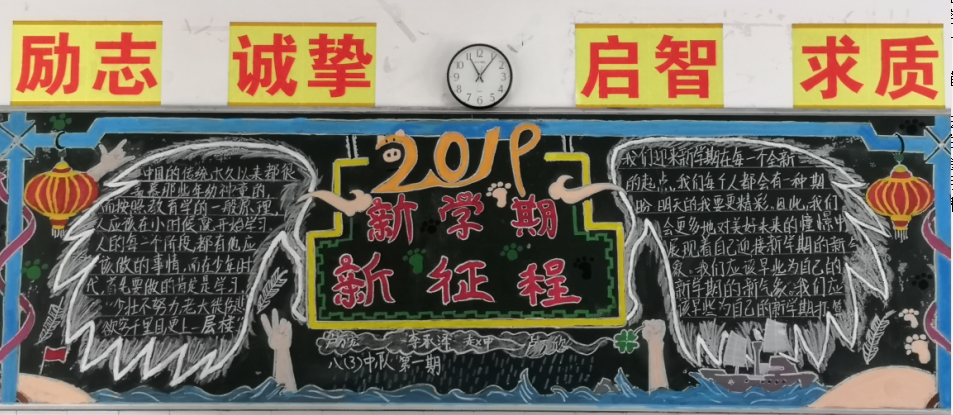 励志
诚挚
启智
求质
12
11
1
10
2
9
3
8
4
7
5
6
2019
新学期
新征程
中国的传统,水久以来都很
羡慕那些年幼神童的
而按照教育学的一般原理,
人应该在小时候就开始学习,
人的每一个阶段,都有他应
该做的事情,而在少年时
代,首先要做的前是学习,
少壮不努力老大徒伤悲
欲穷千里目更上一层楼
我们迎来新学期在每一个全新
的起点,我们每个人都会有一种期
盼 明天的我要更精彩,因此,我们
会更多地对美好未来的憧憬中
展现着自己迎接新学期的新气
象,我们应该早些为自己的
新学期的新气象,我们应
该早些为自己的新学期打算
八(3)中队 第一期